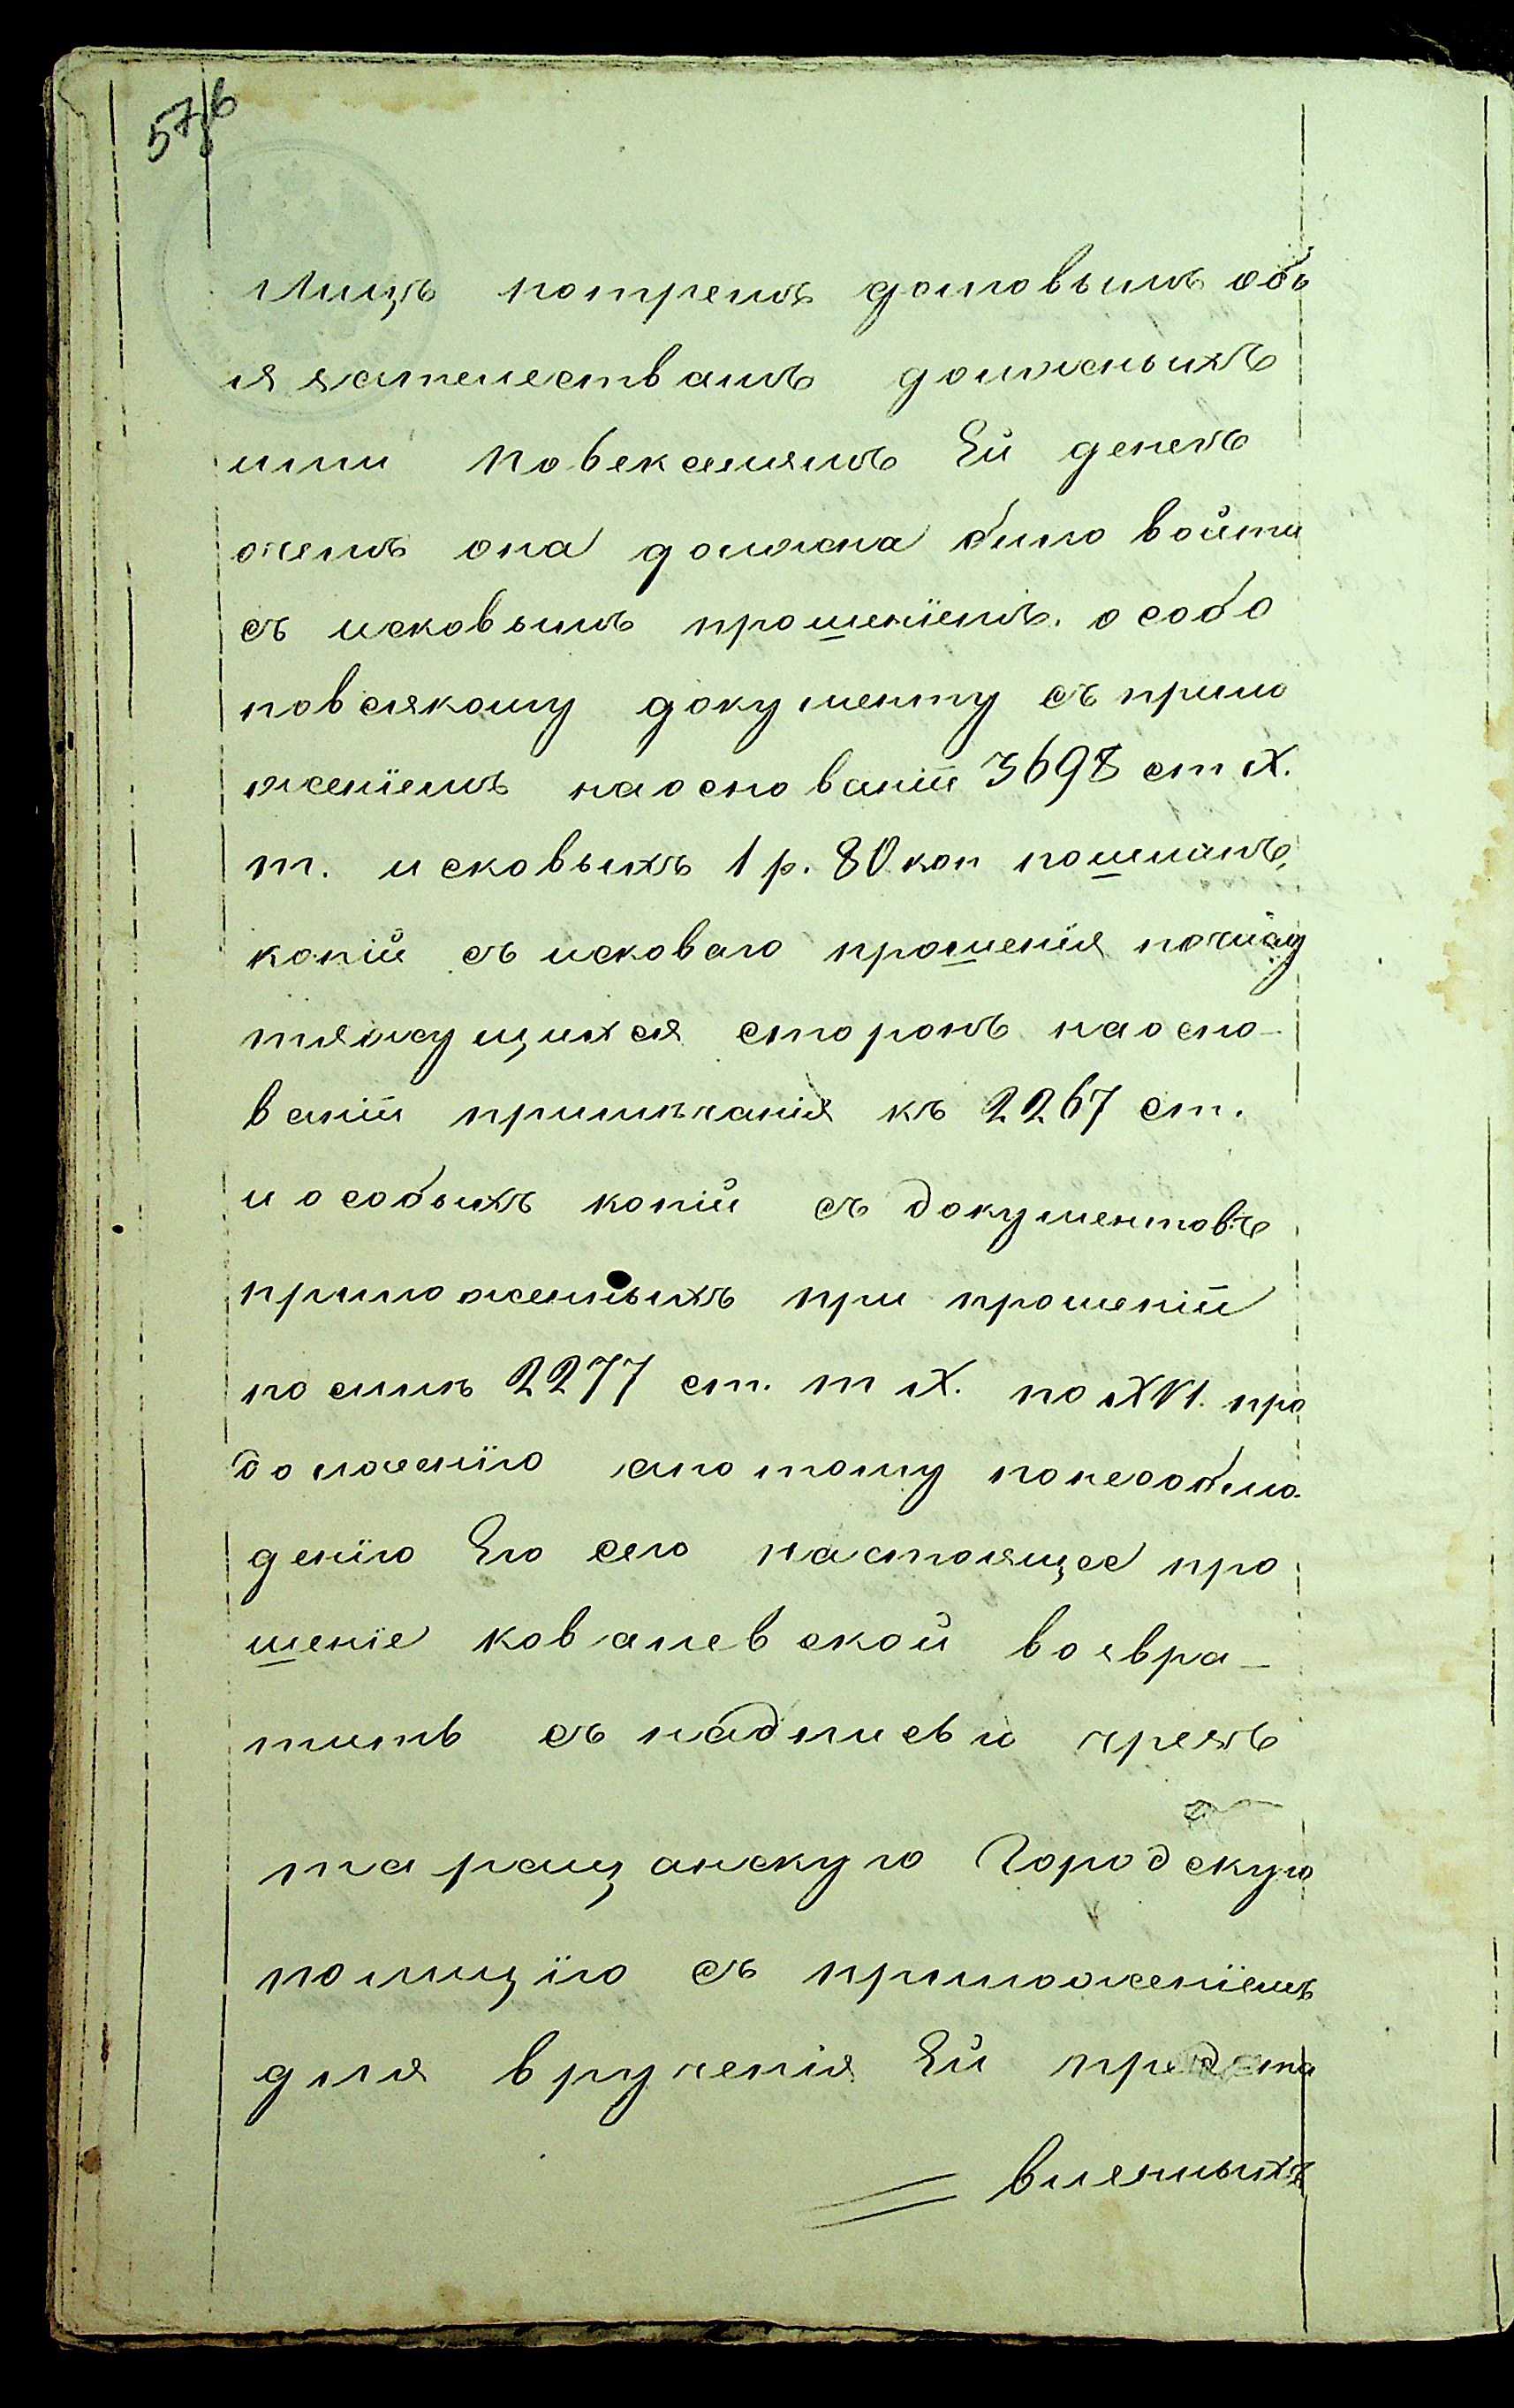 57/6
лицъ потремъ долговымъ обѣ
язательствамъ должныхъ
ими повекселямъ Ей денегъ
очемъ она должна було войти
съ исковымъ прошеніемъ. особо
повсякому документу съ прило
женіемъ наоснованіи 3698 ст X.
т. исковыхъ 1 р. 80 коп пошлинъ,
копій съ исковаго прошенія почислу
тяжущихся сторонъ наосно-
ваніи примѣчанія къ 2267 ст.
и особыхъ копій съ документовъ
приложенныхъ при прошеніи
посилѣ 2277 ст. т X. по XVI. про
долженію апотому понесоблю
денію Ею сего настоящее про
шеніе ковалевской возвра-
тить съ надписью чрезъ
таращанскую Городскую
полицію съ приложеніемъ
для врученія Ей предста
вленныхъ